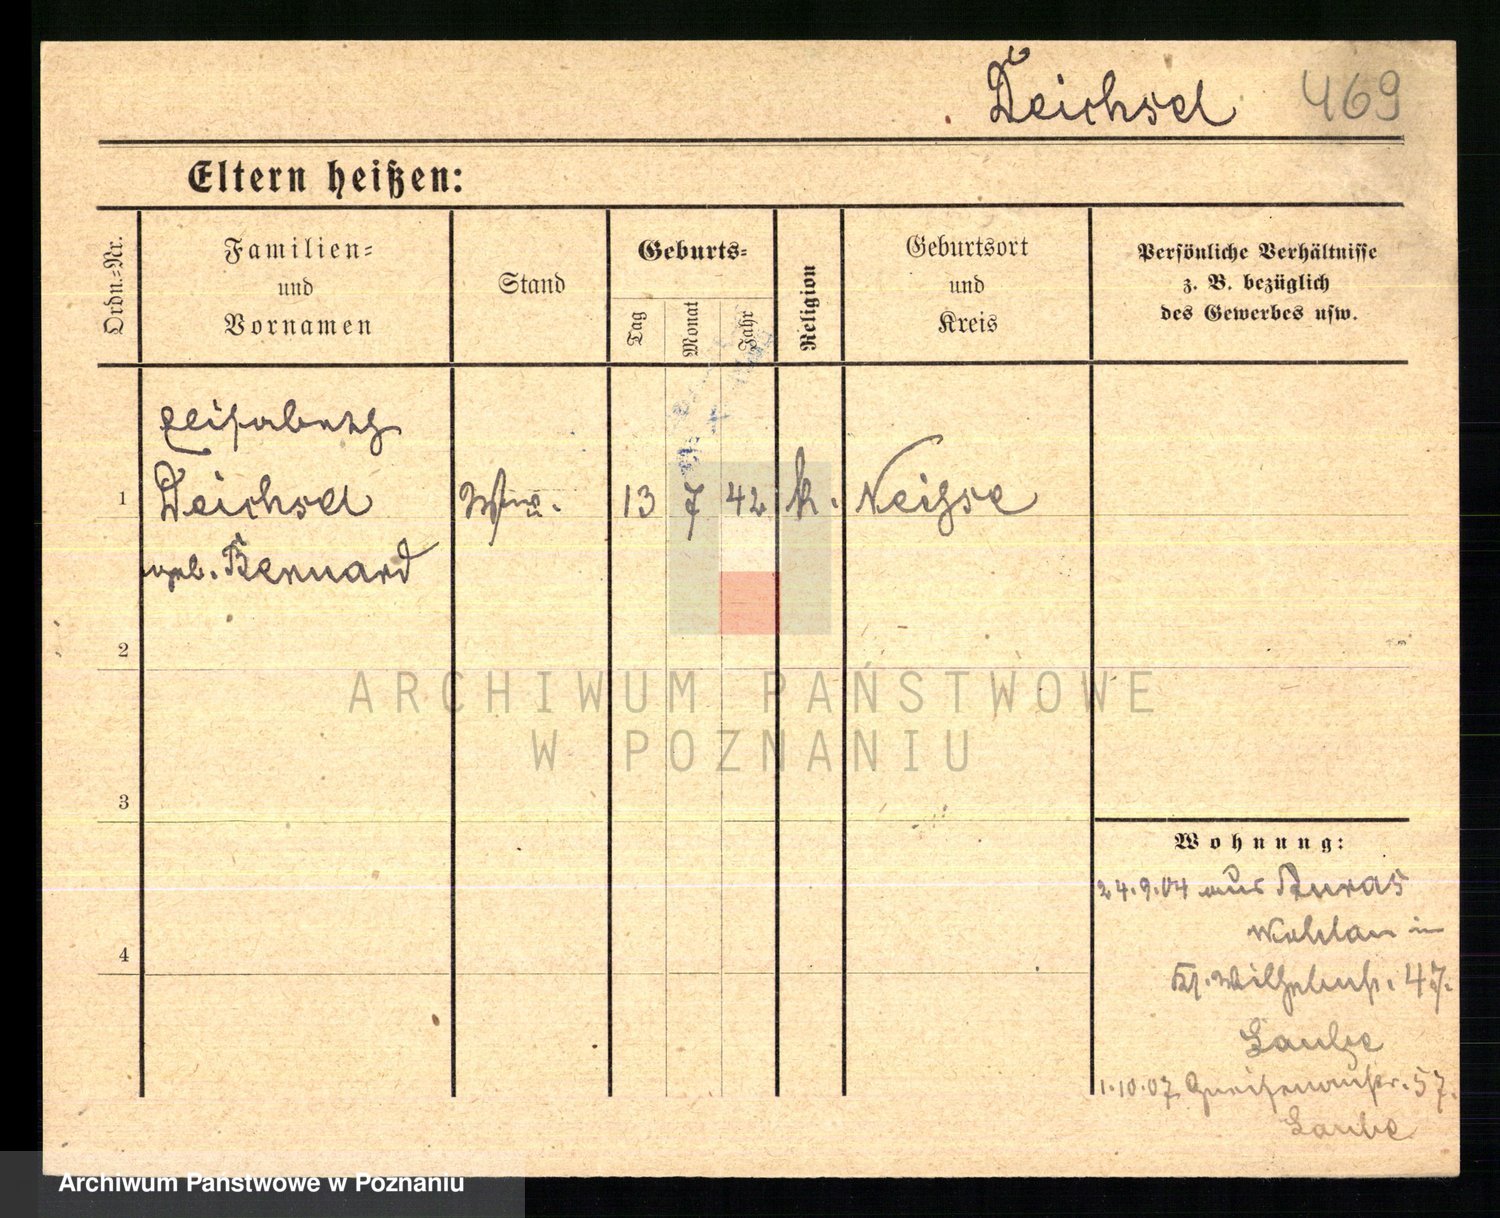 Deichsel 469
Eltern heißen:
Ordn.-Nr.
Familien-
und
Vornamen
Stand
Geburts-
Tag
Monat
Jahr
Religion
Geburtsort
und
Kreis
Persönliche Verhältnisse
z. B. bezüglich
des Gewerbes usw.
Elisabeth
1 Deichsel Wwe. 13 7 42 k. Neisse
geb. Bernard
2
3
4
Wohnung:
24.9.04 aus Auras
Wohlau in
Kl. Wilhelmstr. 47.
Laube
1.10.07 Gneisenaustr. 57.
Laube
ARCHIWUM PAŃSTWOWE
W POZNANIU
Archiwum Państwowe w Poznaniu